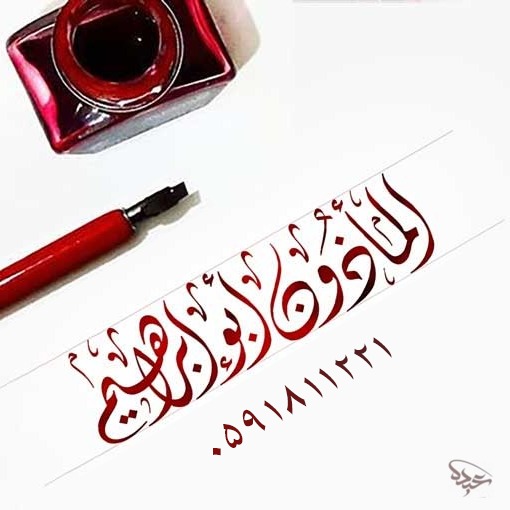 المأذون أبو ابراهيم
٠٥٩١٨١١٢٢١